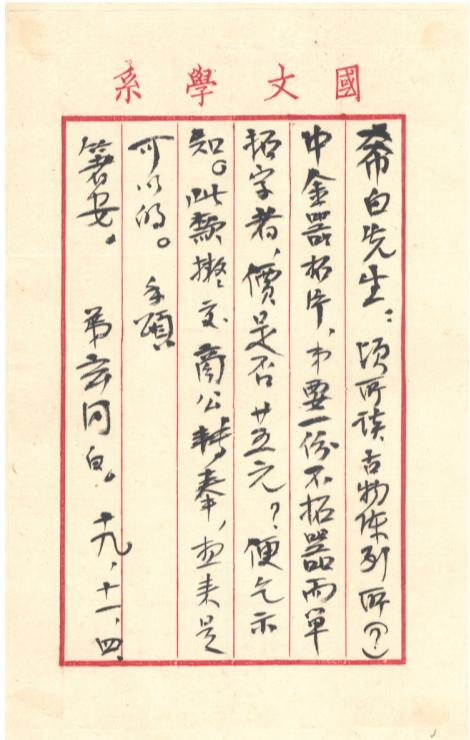 國文學系
希白先生：頃所談古物陳列所（？）
中金器拓片，弟要一份不拓器而單
拓字者，價是否廿五元？便乞示
知。此款擬交商公轉奉，想来是
可以的。手頌
箸安。 弟玄同白。 十九，十一，四，